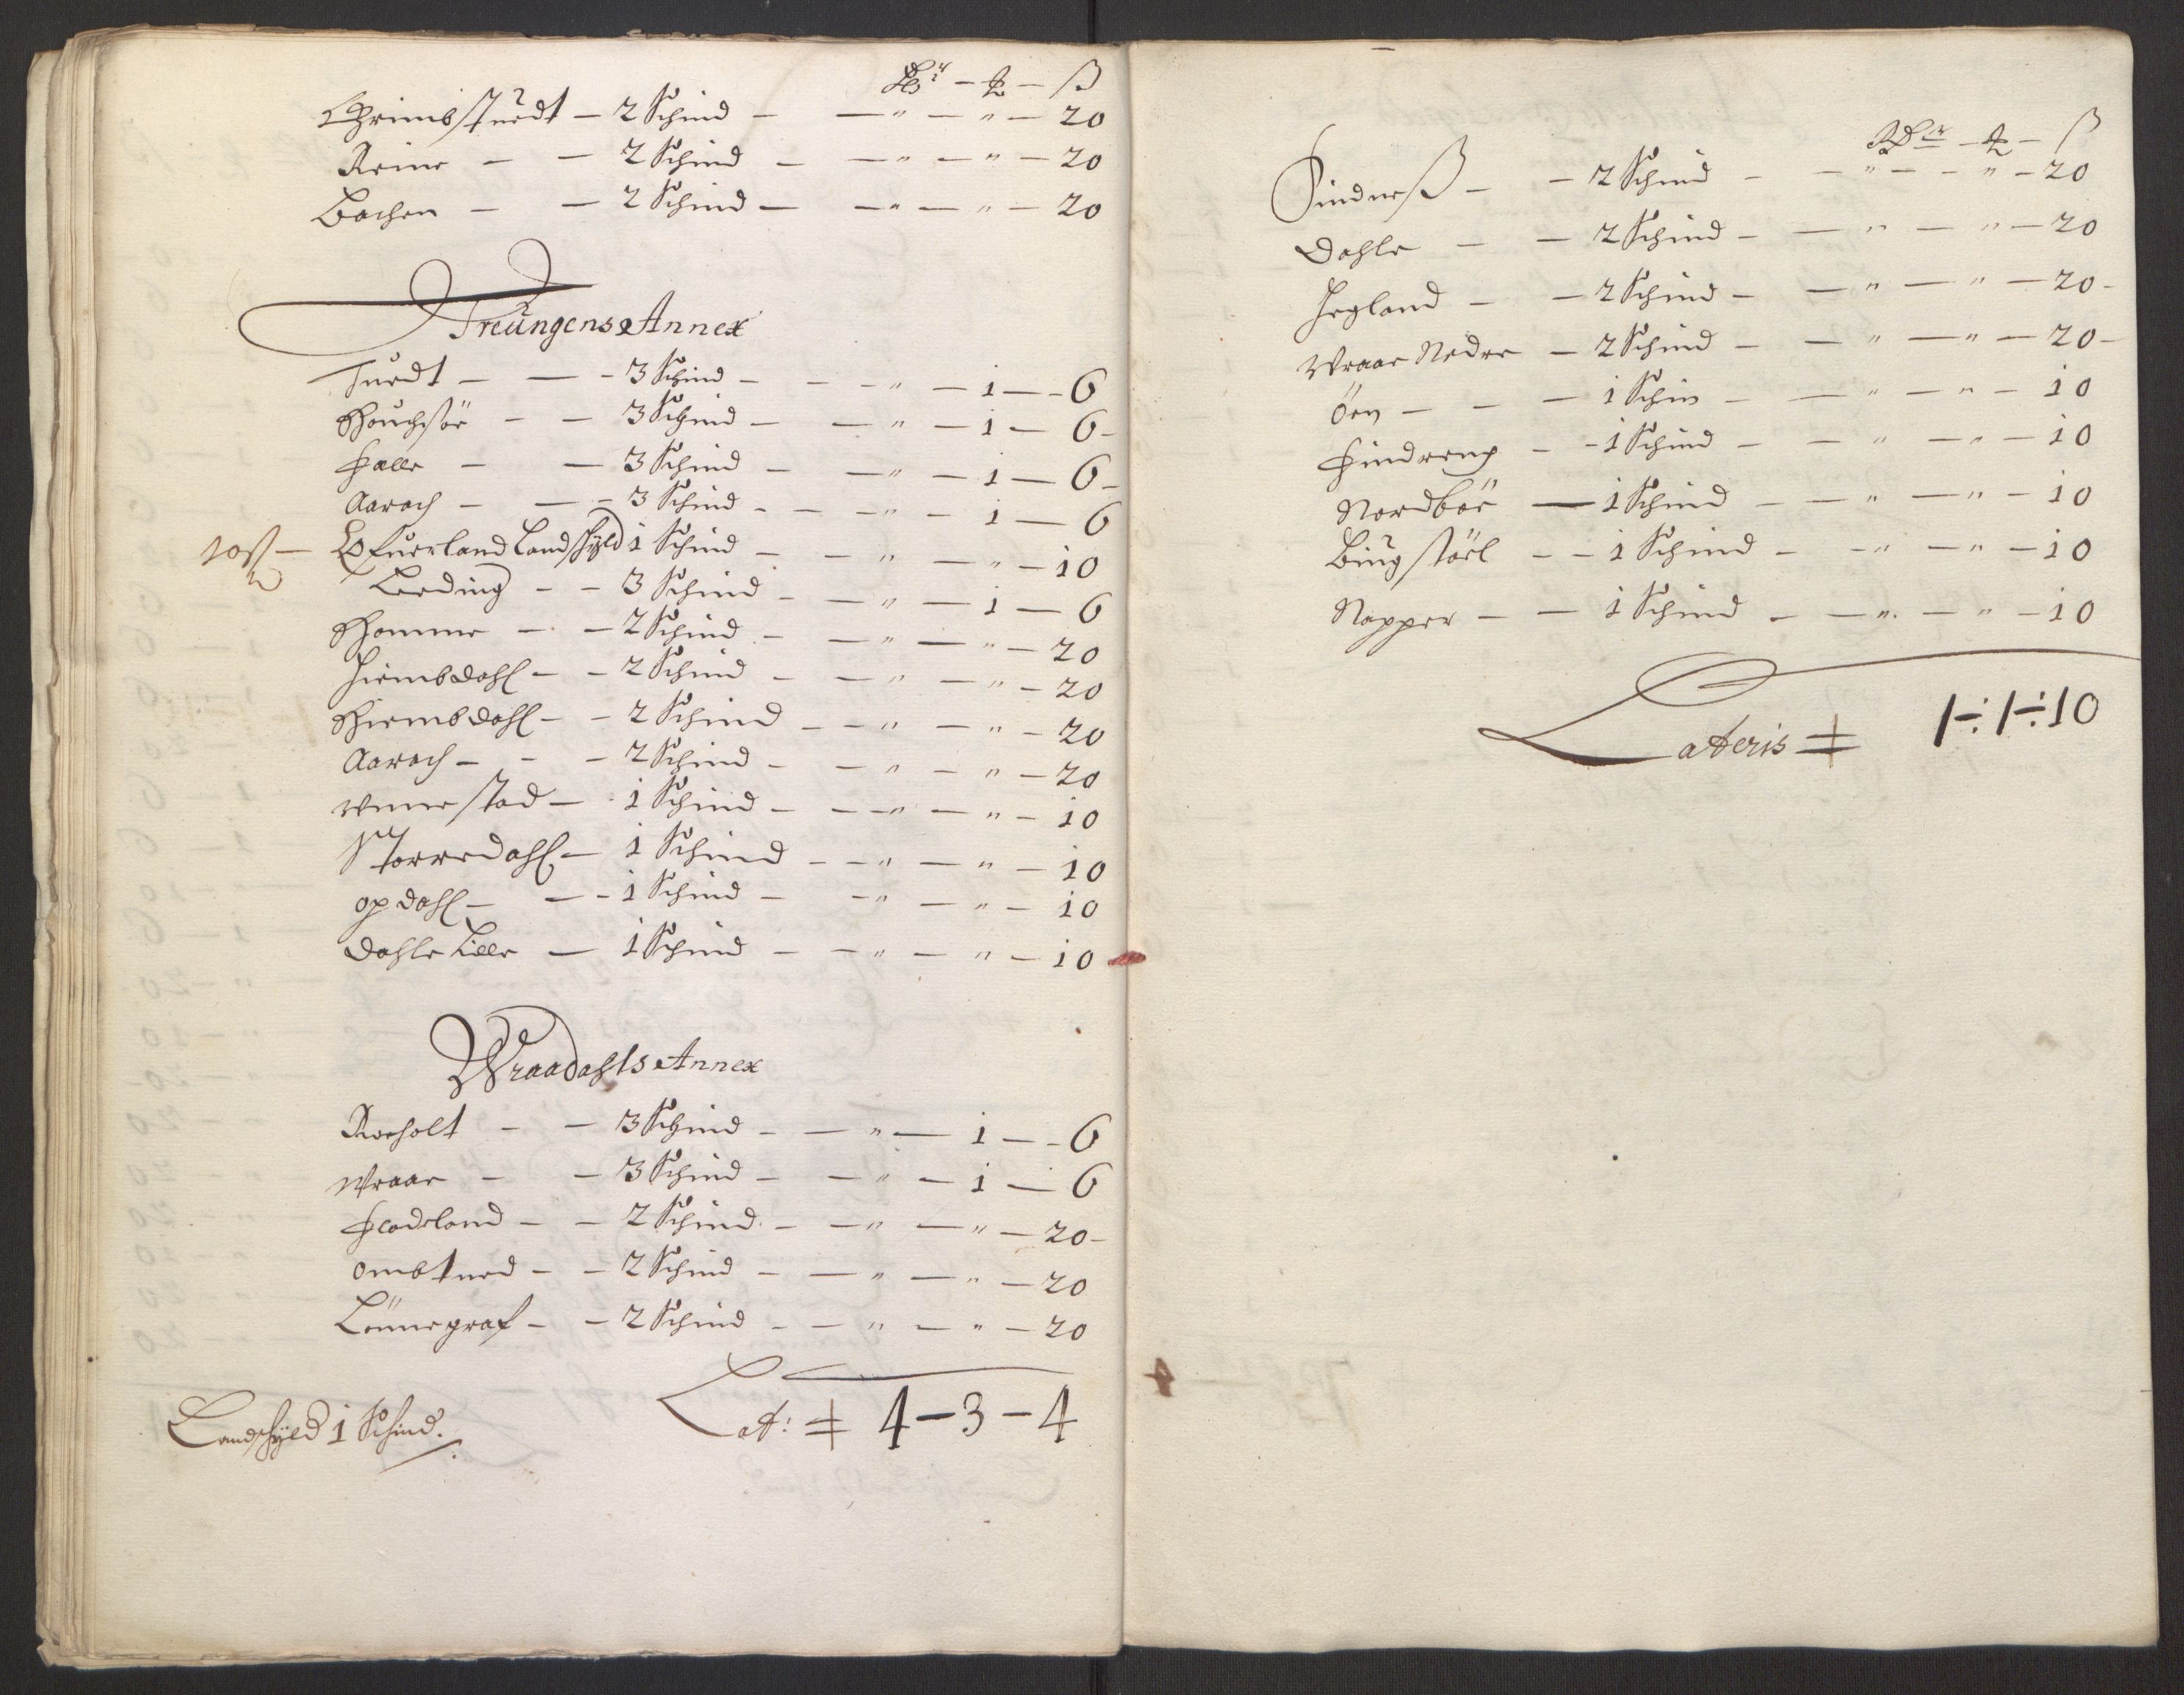 Rdr — ℔ — ß
Grimbstuedt — 2 Schind — — " — " — 20
Reine — — 2 Schind — — " — " — 20
Bachen — — 2 Schind — — " — " — 20
Treungens Annex
Tuedt — — 3 Schind — — " — 1 — 6
Houchsöe — — 3 Schind — — " — 1 — 6
Falle — — 3 Schind — — " — 1 — 6
Aarach — — 3 Schind — — " — 1 — 6
10 ß — Ofuerland Landschyld 1 Schind — — " — " — 10
Leeding — — 3 Schind — — " — 1 — 6
Homme — — 2 Schind — — " — " — 20
Hiembdahl — — 2 Schind — — " — " — 20
Hiembdahl — — 2 Schind — — " — " — 20
Aarach — — 2 Schind — — " — " — 20
Wennestad — 1 Schind — — " — " — 10
Storredahl — 1 Schind — — " — " — 10
opdahl — — 1 Schind — — " — " — 10
Dahle Lille — 1 Schind — — " — " — 10
Wraadahls Annex
Roeholt — — 3 Schind — — " — 1 — 6
Wraae — — 3 Schind — — " — 1 — 6
Fladeland — — 2 Schind — — " — " — 20
ombtued — — 2 Schind — — " — " — 20
Lönnegraf — — 2 Schind — — " — " — 20
Lat: 4 — 3 — 4
Landschyld 1 Schind.
Rdr — ℔ — ß
Sindneß — — 2 Schind — — " — " — 20
Dahle — — 2 Schind — — " — " — 20
Hegland — — 2 Schind — — " — " — 20
Wraae Nedre — 2 Schind — — " — " — 20
Öen — — — 1 Schin — — " — " — 10
Findreng — — 1 Schind — — " — " — 10
Nordböe — 1 Schind — — " — " — 10
Bingstöel — — 1 Schind — — " — " — 10
Napper — — 1 Schind — — " — " — 10
Lateris 1 ÷ 1 ÷ 10